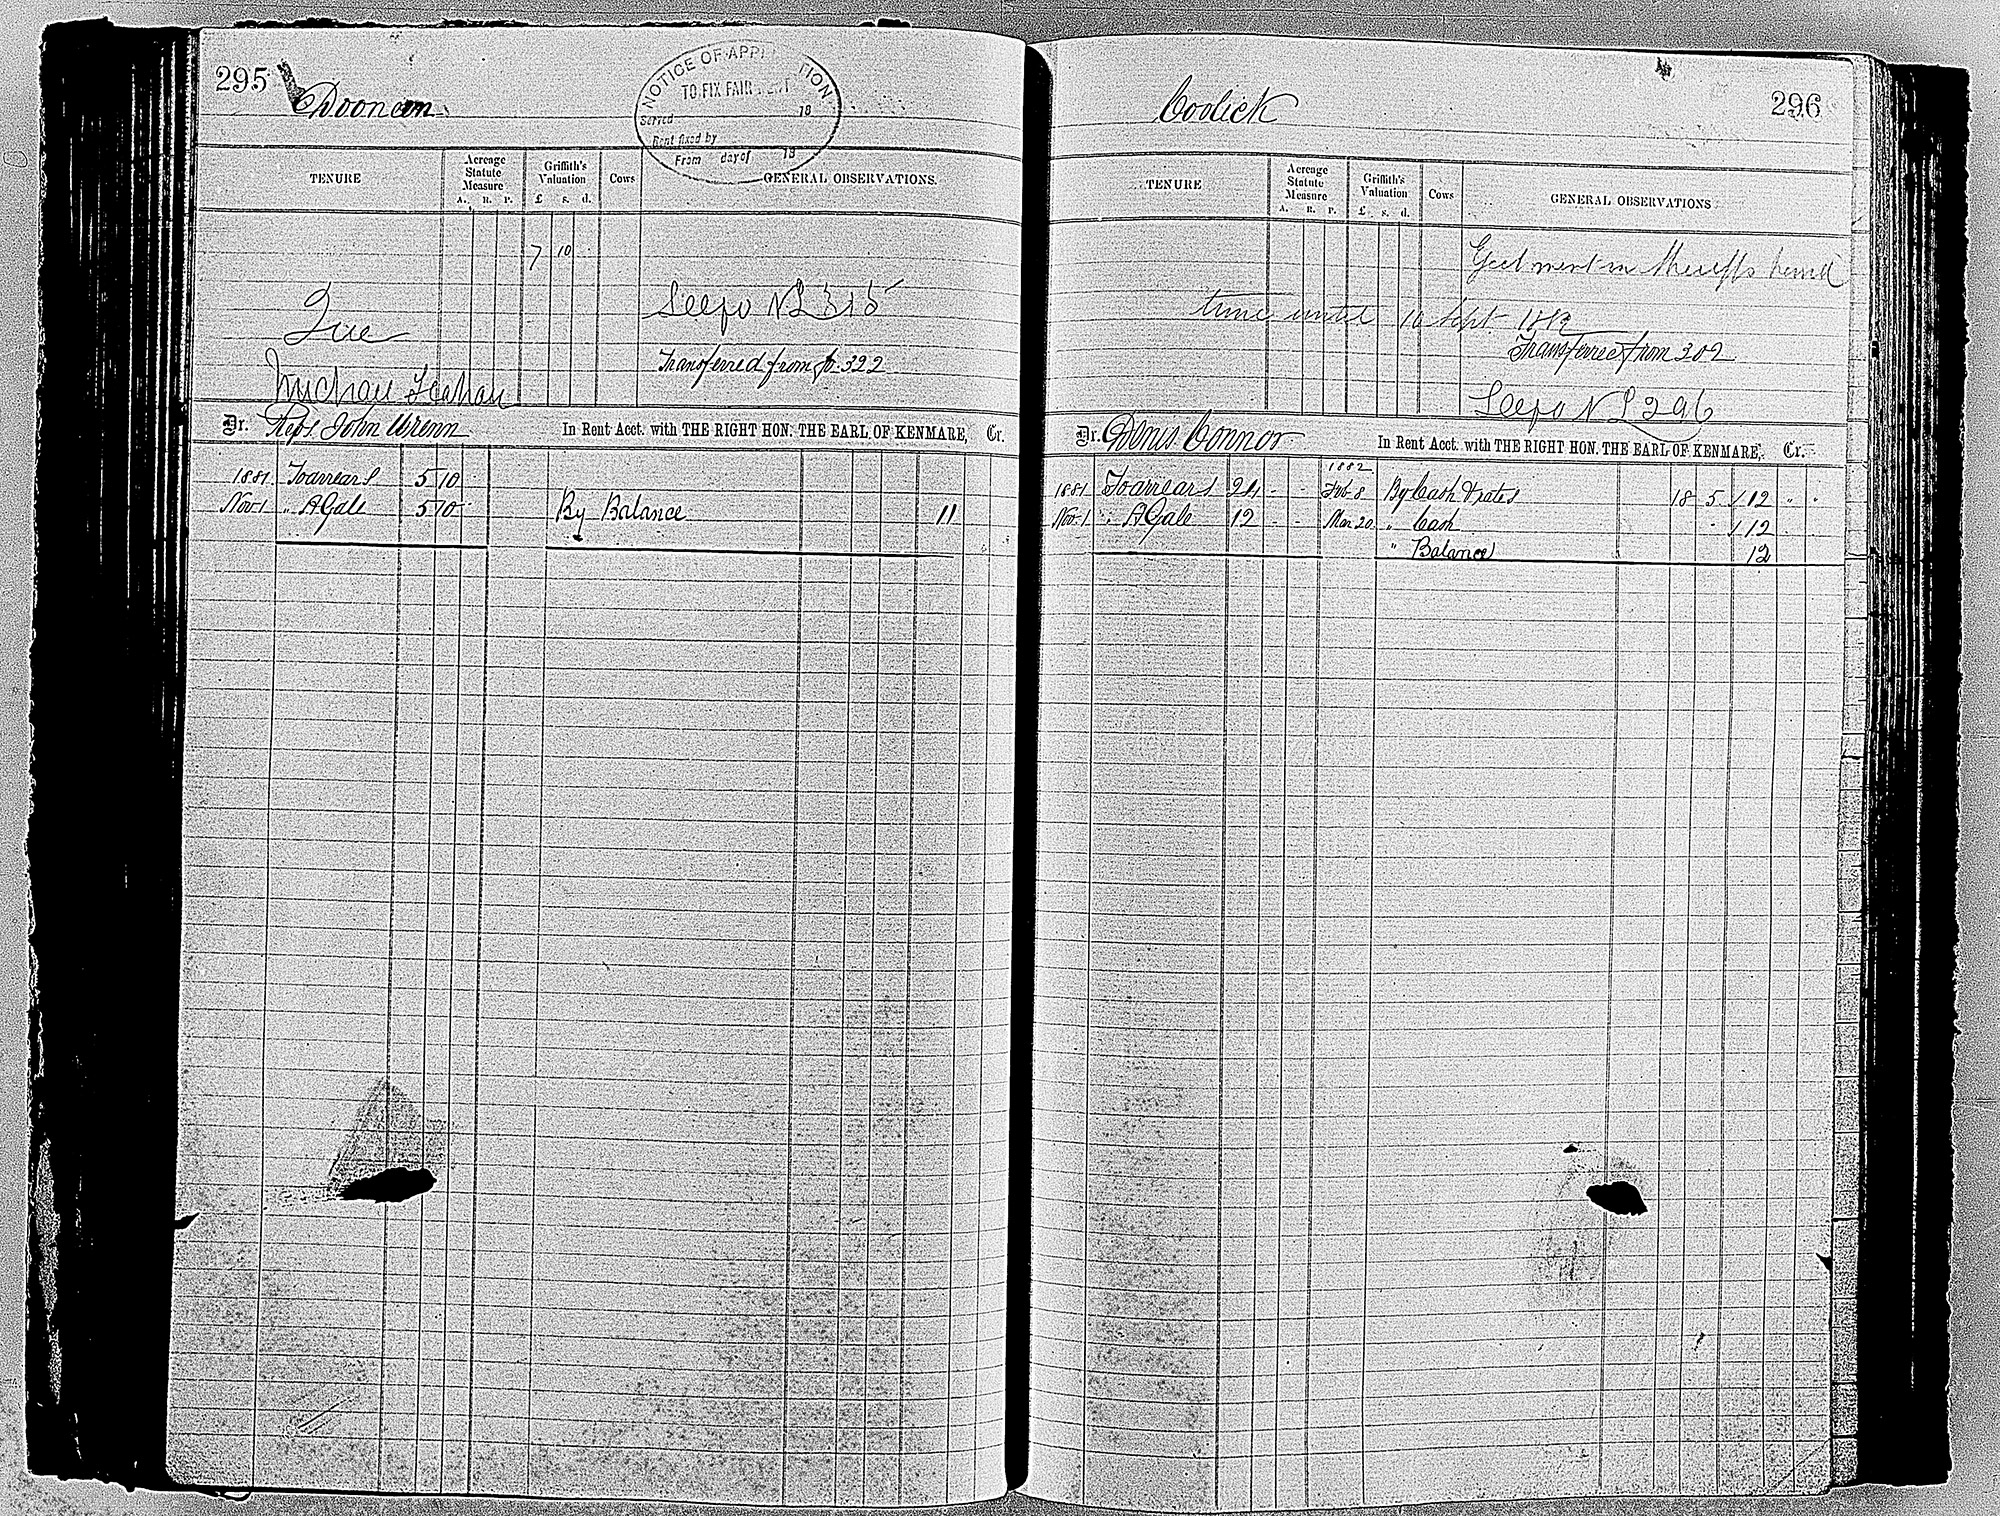 295
Doonean
NOTICE OF APPLICATION
TO FIX FAIR RENT
Served 18
Rent fixed by
From day of 18
TENURE
Acreage Statute Measure
A. R. P.
Griffith's Valuation
£ s. d.
Cows
GENERAL OBSERVATIONS.
7 10
See fo NL 315
Transferred from fo. 322
Michael Leahau
Dr. Reps John Wrenn In Rent Acct. with THE RIGHT HON. THE EARL OF KENMARE, Cr.
1881 To arrears 5 10
Nov 1 " A Gale 5 10 By Balance 11
296
Coolick
TENURE
Acreage Statute Measure
A. R. P.
Griffith's Valuation
£ s. d.
Cows
GENERAL OBSERVATIONS
in Sheriffs hand
time until 10 Sept 1882
Transferred from 302
See fo NL 296
Dr. Denis Connor In Rent Acct. with THE RIGHT HON. THE EARL OF KENMARE, Cr.
1882
1881 To arrears 24 - - Feb 8 By Cash & rates 18 5 / 12 " "
Nov 1 " A Gale 12 - - Mar 20 " Cash / 12
" Balance 12